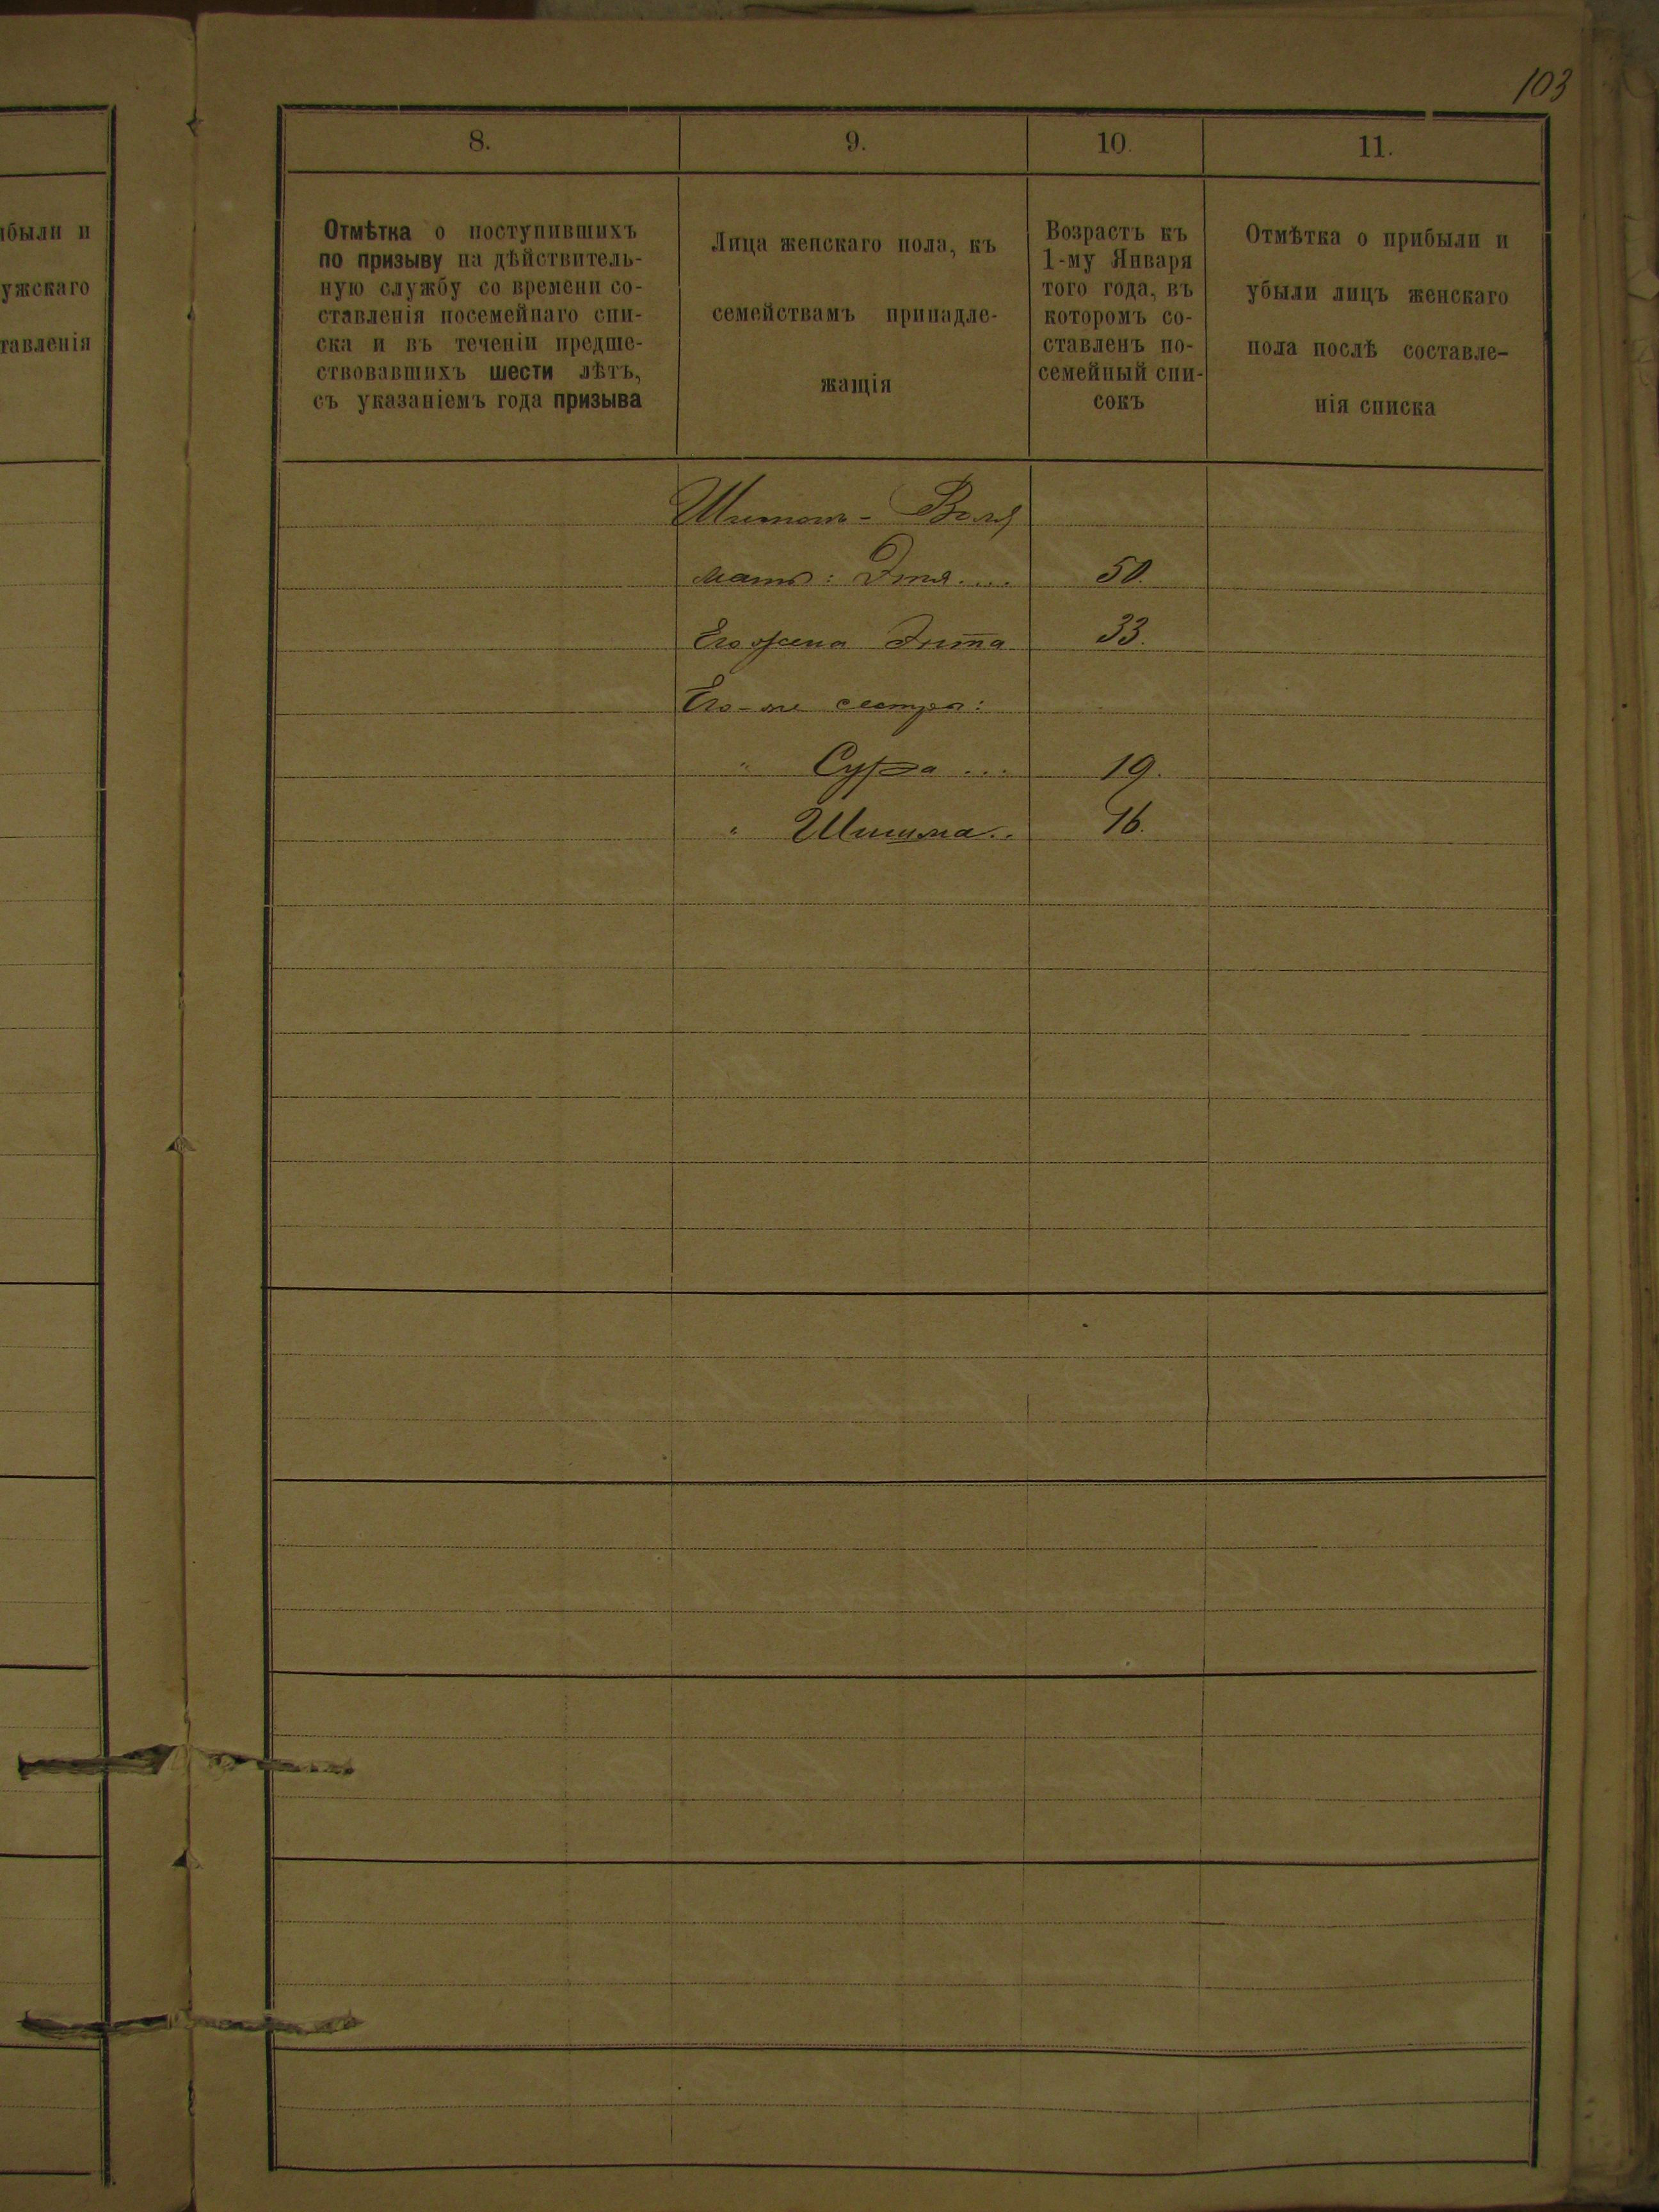 103
8.
9.
10.
11.
ибыли и
ужскаго
тавленія
Отмѣтка о поступившихъ
по призыву на дѣйствитель-
ную службу со времени со-
ставленія посемейнаго спи-
ска и въ теченіи предше-
ствовавшихъ шести лѣтъ,
съ указаніемъ года призыва
Лица женскаго пола, къ
семействамъ принадле-
жащія
Возрастъ къ
1-му Января
того года, въ
которомъ со-
ставленъ по-
семейный спи-
сокъ
Отмѣтка о прибыли и
убыли лицъ женскаго
пола послѣ составле-
нія списка
мать: Этя.... 50.
Его жена 33.
Его-же сестры:
" Сура ... 19.
" 16.